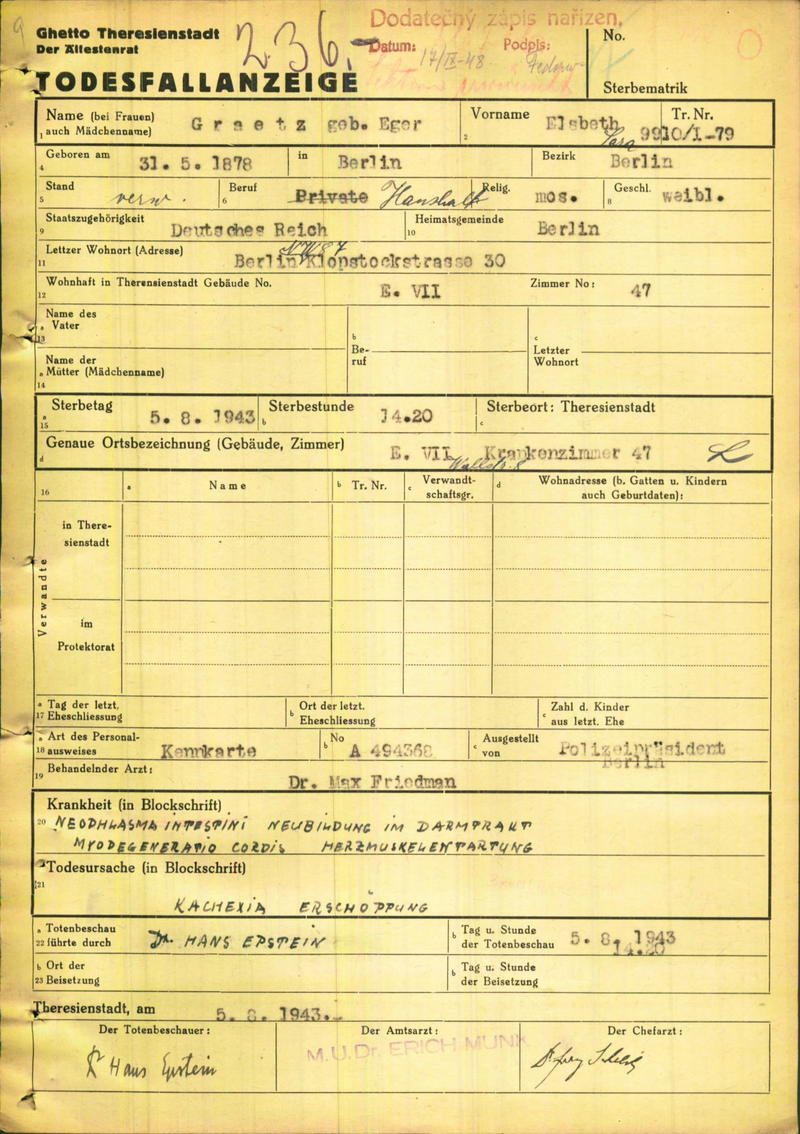 Ghetto Theresienstadt
Der Ältestenrat
236.
Dodatečný zápis nařízen.
Datum: 17/IX-48 Podpis:
No.
Sterbematrik
TODESFALLANZEIGE
Name (bei Frauen) auch Mädchenname) 1 Graetz geb. Eger
Vorname 2 Elsbeth Sara
Tr. Nr. 9910/I-79
Geboren am 4 31. 5. 1878 in Berlin Bezirk Berlin
Stand 5 verw. Beruf 6 Private Haushalt Relig. mos. Geschl. 8 weibl.
Staatszugehörigkeit 9 Deutsches Reich Heimatsgemeinde 10 Berlin
Lettzer Wohnort (Adresse) 11 Berlin NW 87 Klopstockstrasse 30
Wohnhaft in Therensienstadt Gebäude No. 12 E. VII Zimmer No: 47
Name des Vater a 13
b Beruf
c Letzter Wohnort
Name der Mütter (Mädchenname) a 14
Sterbetag a 15 5. 8. 1943 Sterbestunde b 14.20 Sterbeort: Theresienstadt c
Genaue Ortsbezeichnung (Gebäude, Zimmer) d E. VII Krankenzimmer 47
16 a Name b Tr. Nr. c Verwandtschaftsgr. d Wohnadresse (b. Gatten u. Kindern auch Geburtdaten):
Verwandte
in Theresienstadt
im Protektorat
a 17 Tag der letzt. Eheschliessung b Ort der letzt. Eheschliessung c Zahl d. Kinder aus letzt. Ehe
a 18 Art des Personalausweises Kennkarte b No A 494368 c Ausgestellt von Polizeipräsident Berlin
19 Behandelnder Arzt: Dr. Max Friedman
Krankheit (in Blockschrift)
20 NEOPHLASMA INTESTINI NEUBILDUNG IM DARMTRAKT
MYODEGENERATIO CORDIS HERZMUSKELENTARTUNG
Todesursache (in Blockschrift)
21
KACHEXIA ERSCHOPPUNG
a 22 Totenbeschau führte durch Dr. HANS EPSTEIN b Tag u. Stunde der Totenbeschau 5. 8. 1943 14.20
b 23 Ort der Beisetzung b Tag u. Stunde der Beisetzung
Theresienstadt, am 5. 8. 1943.
Der Totenbeschauer: Der Amtsarzt: Der Chefarzt:
Dr Hans Epstein M.U.Dr. ERICH MUNK